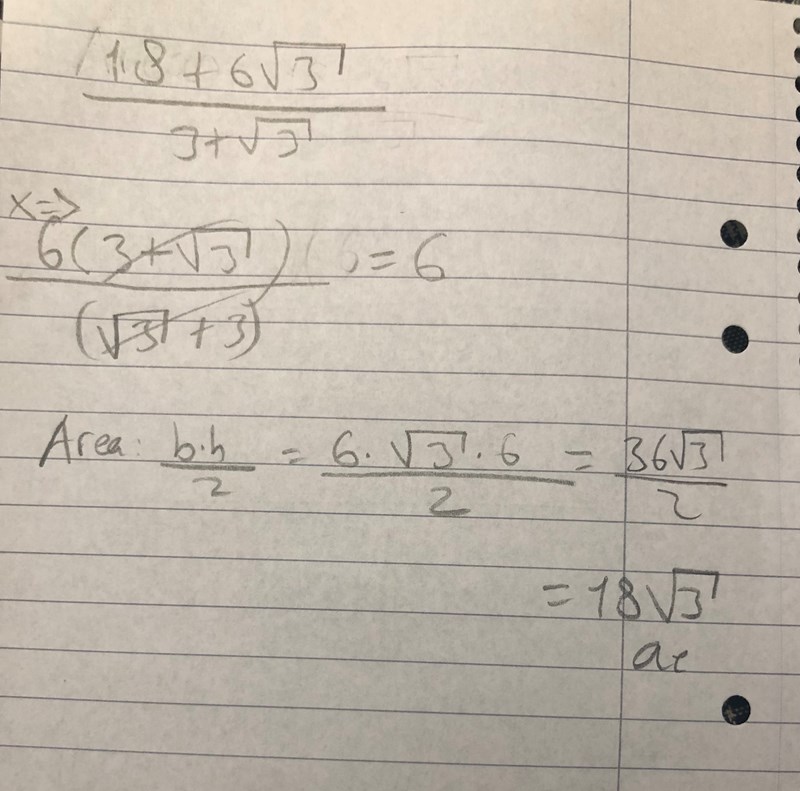 18 + 6√3
3+√3
x=>
6(3+√3) = 6
(√3 + 3)
Area: b.h/2 = 6.√3.6/2 = 36√3/2
= 18√3